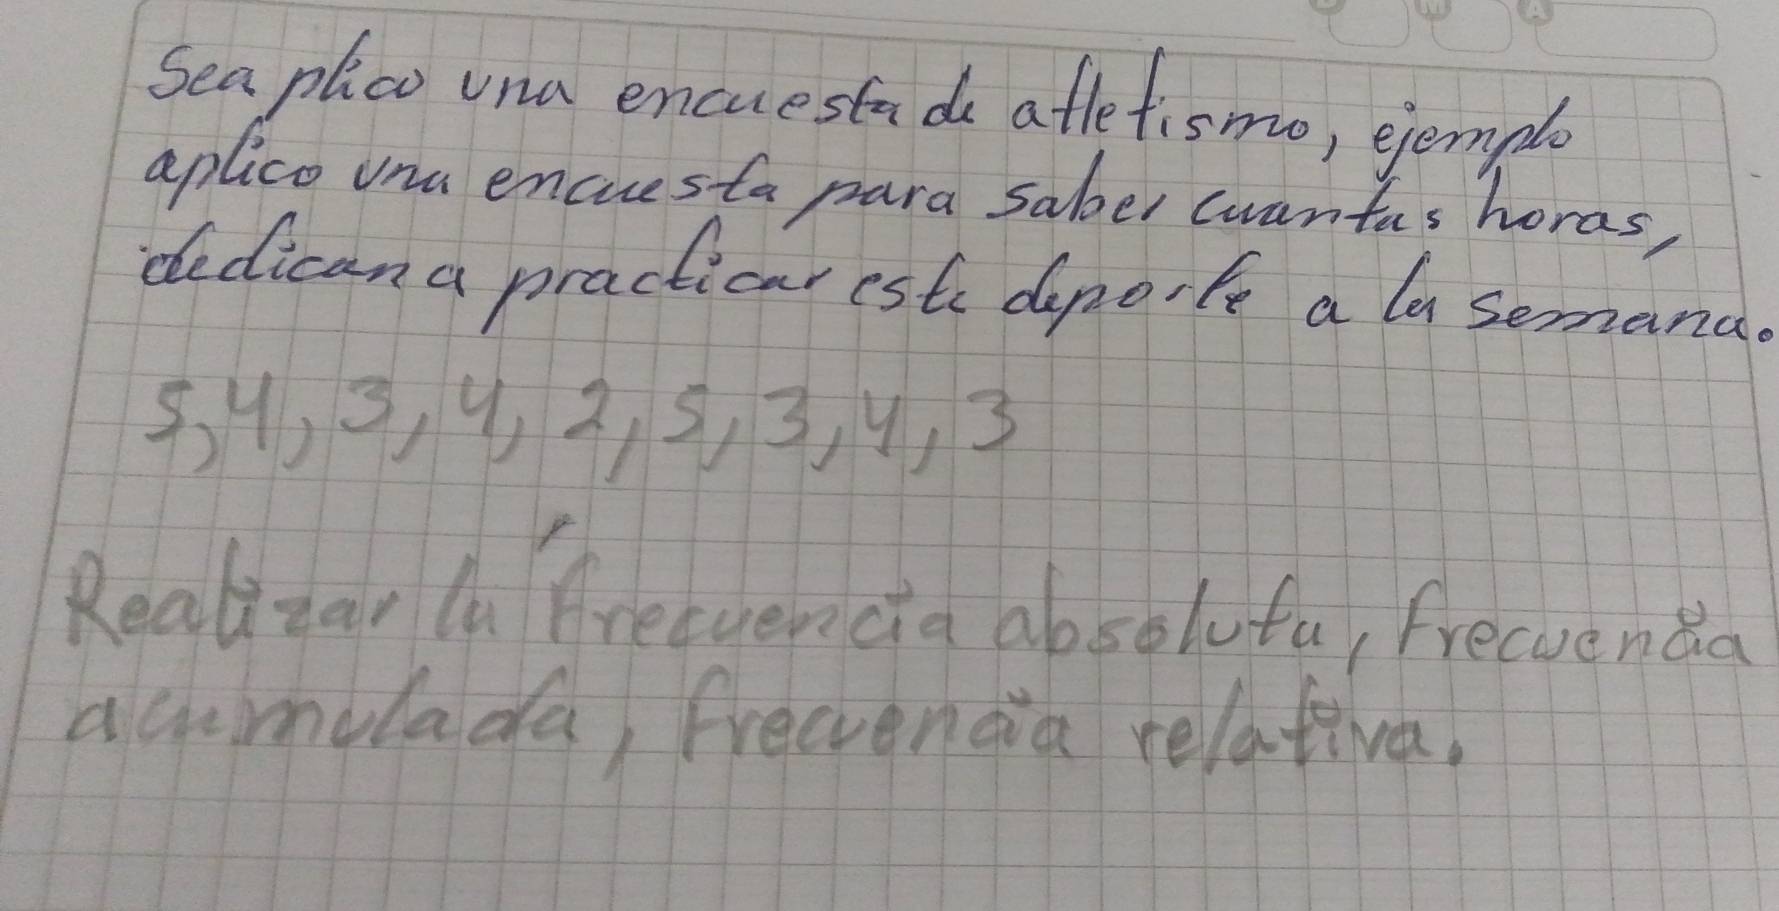 Sea plico una encuesta de atletismo, ejemplo
aplico una encuesta para saber cuantas horas,
dedican a practicar este deporte a la semana.
5, 4, 3, 4, 2, 5, 3, 4, 3
Realizar la frecuencia absoluta, frecuencia
acumulada, frecuencia relativa.